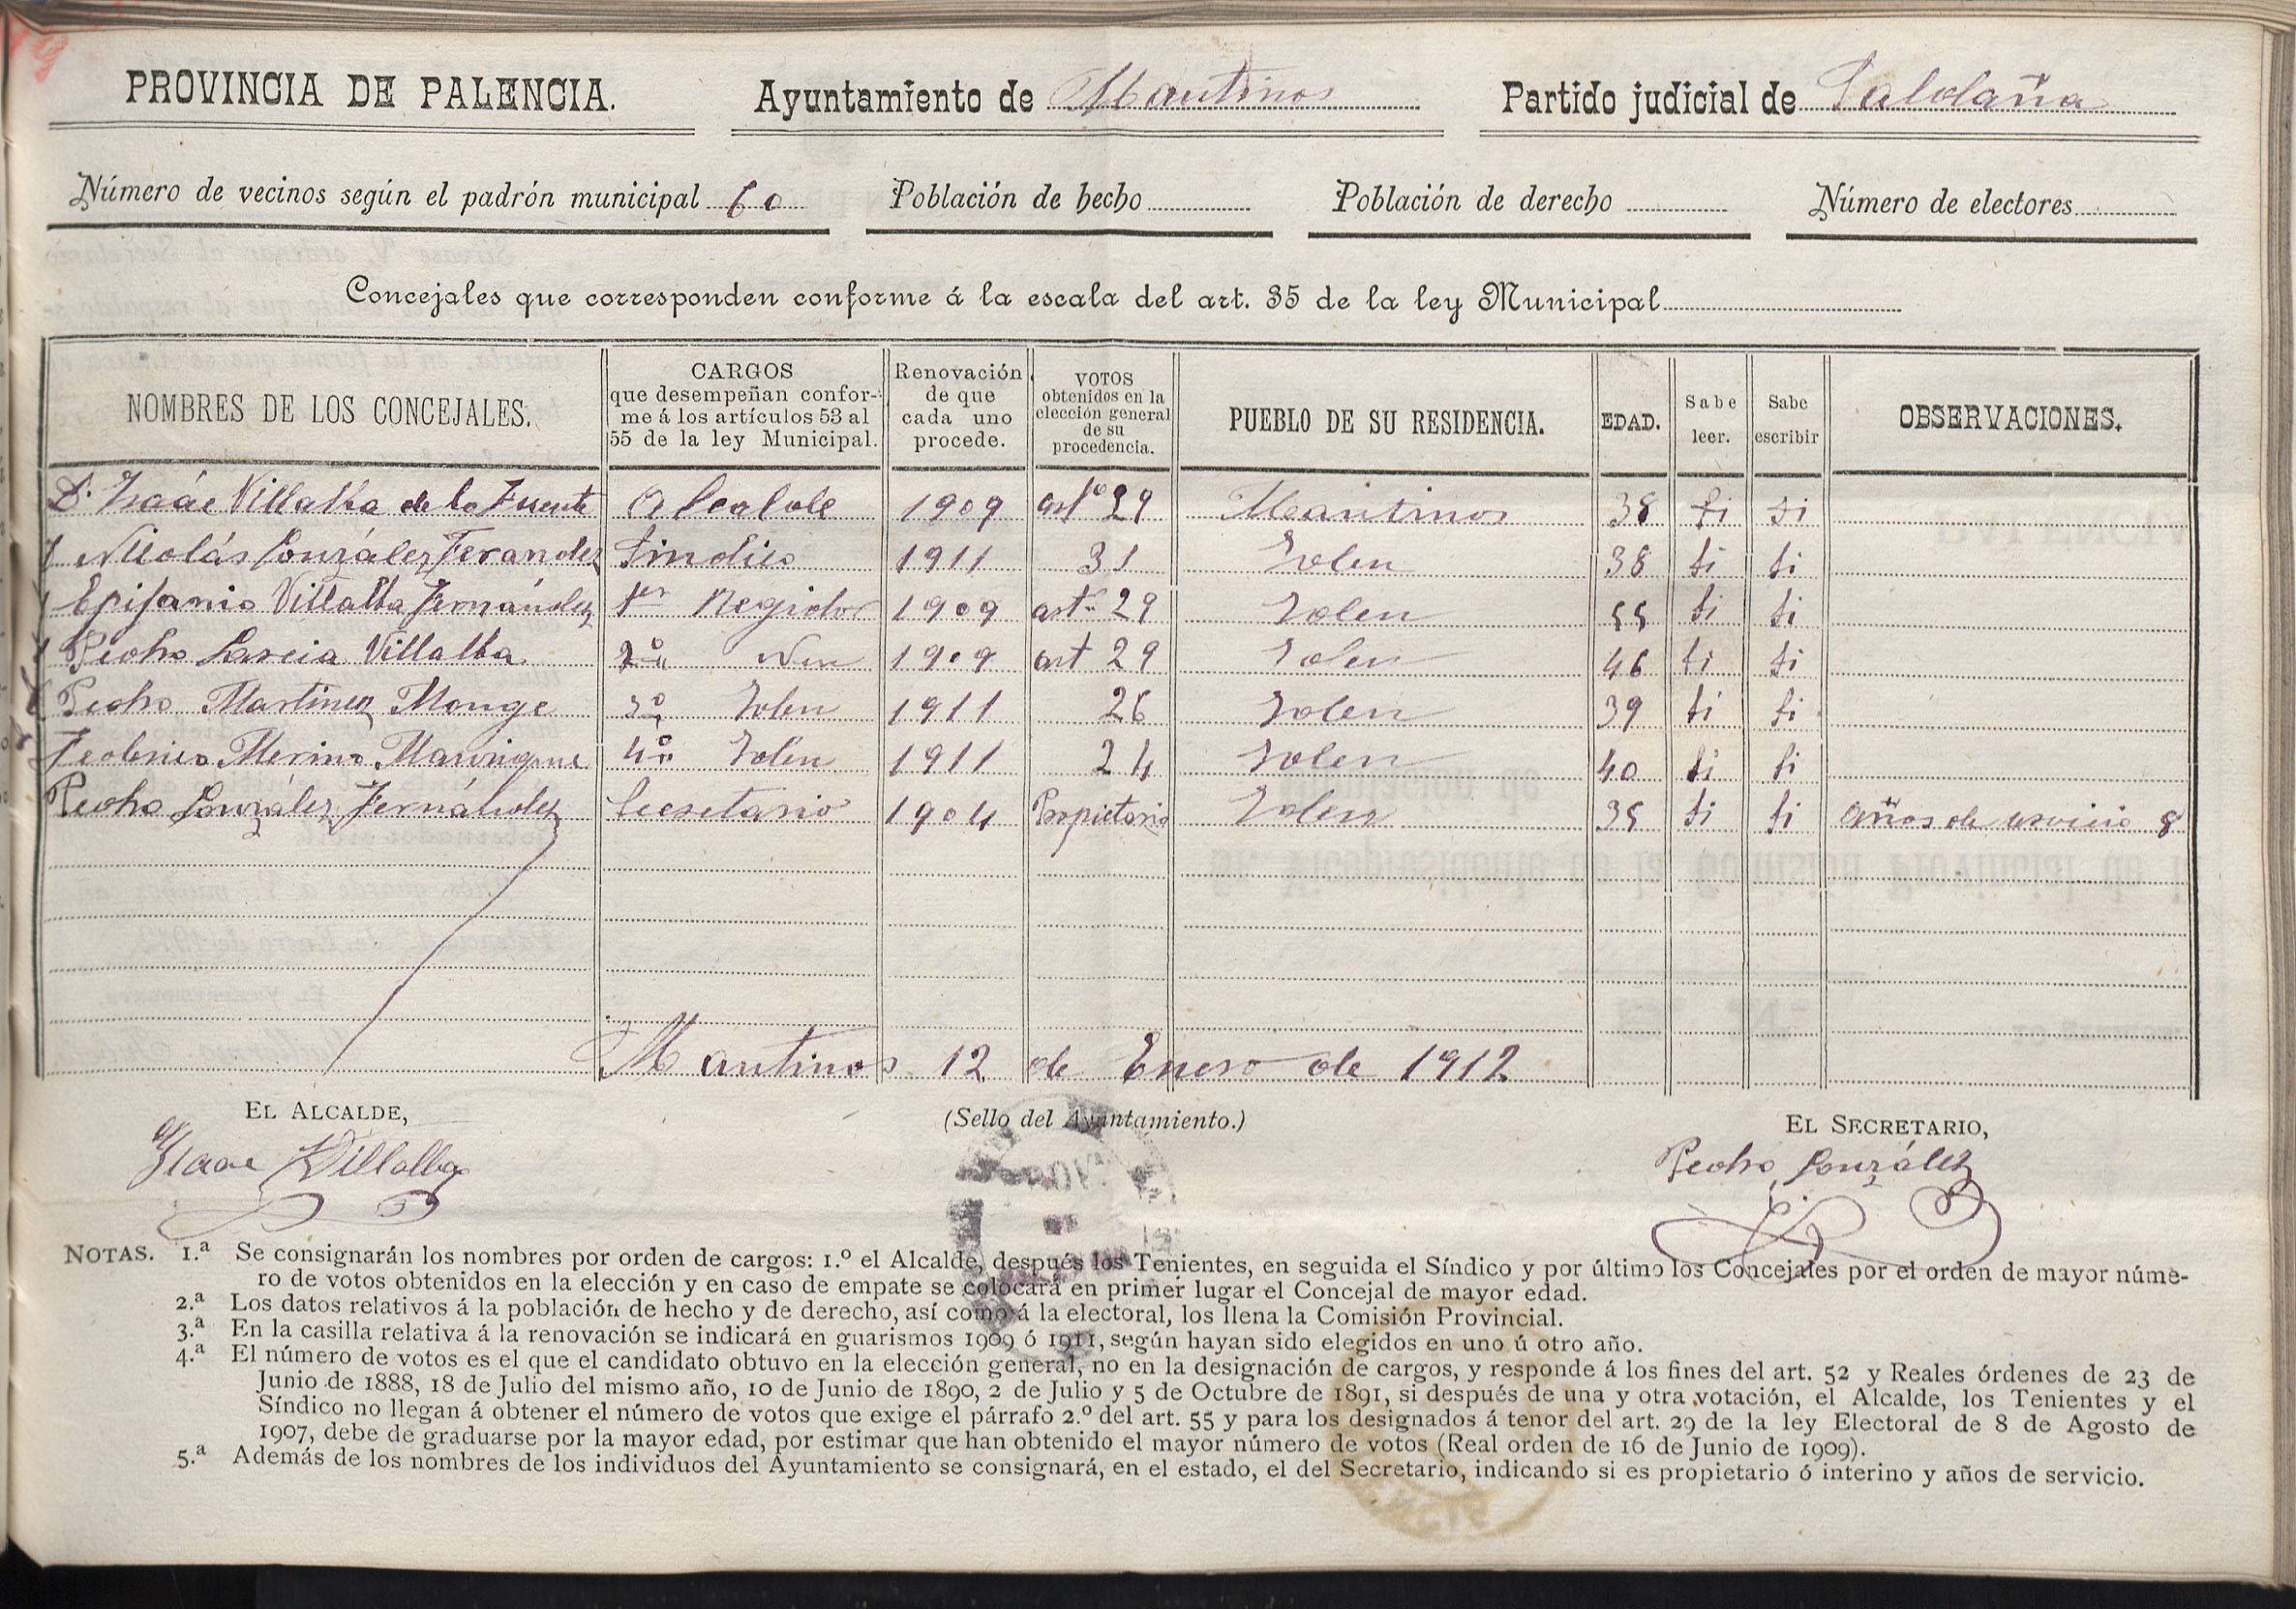 PROVINCIA DE PALENCIA. Ayuntamiento de Mantinos Partido judicial de Saldaña
Número de vecinos según el padrón municipal 60 Población de hecho Población de derecho Número de electores
Concejales que corresponden conforme á la escala del art. 35 de la ley Municipal
NOMBRES DE LOS CONCEJALES. CARGOS que desempeñan conforme á los artículos 53 al 55 de la ley Municipal. Renovación de que cada uno procede. VOTOS obtenidos en la elección general de su procedencia. PUEBLO DE SU RESIDENCIA. EDAD. Sabe leer. Sabe escribir OBSERVACIONES.
D. Isaác Villalba de la Fuente Alcalde 1909 artº 29 Mantinos 38 si si
Nicolás González Fernandez Sindico 1911 31 Idem 38 si si
Epifanio Villalba Fernández 1er Regidor 1909 art. 29 Idem 55 si si
Pedro Garcia Villalba 2º Idem 1909 art 29 Idem 46 si si
Pedro Martinez Monge 3º Idem 1911 26 Idem 39 si si
Federico Merino Manrique 4º Idem 1911 24 Idem 40 si si
Pedro González Fernández Secretario 1904 Propietario Idem 35 si si Años de servicio 8
Mantinos 12 de Enero de 1912
EL ALCALDE, (Sello del Ayuntamiento.) EL SECRETARIO,
Isaac Villalba Pedro González
NOTAS. 1.ª Se consignarán los nombres por orden de cargos: 1.º el Alcalde, después los Tenientes, en seguida el Síndico y por último los Concejales por el orden de mayor núme-
ro de votos obtenidos en la elección y en caso de empate se colocará en primer lugar el Concejal de mayor edad.
2.ª Los datos relativos á la población de hecho y de derecho, así como á la electoral, los llena la Comisión Provincial.
3.ª En la casilla relativa á la renovación se indicará en guarismos 1909 ó 1911, según hayan sido elegidos en uno ú otro año.
4.ª El número de votos es el que el candidato obtuvo en la elección general, no en la designación de cargos, y responde á los fines del art. 52 y Reales órdenes de 23 de
Junio de 1888, 18 de Julio del mismo año, 10 de Junio de 1890, 2 de Julio y 5 de Octubre de 1891, si después de una y otra votación, el Alcalde, los Tenientes y el
Síndico no llegan á obtener el número de votos que exige el párrafo 2.º del art. 55 y para los designados á tenor del art. 29 de la ley Electoral de 8 de Agosto de
1907, debe de graduarse por la mayor edad, por estimar que han obtenido el mayor número de votos (Real orden de 16 de Junio de 1909).
5.ª Además de los nombres de los individuos del Ayuntamiento se consignará, en el estado, el del Secretario, indicando si es propietario ó interino y años de servicio.